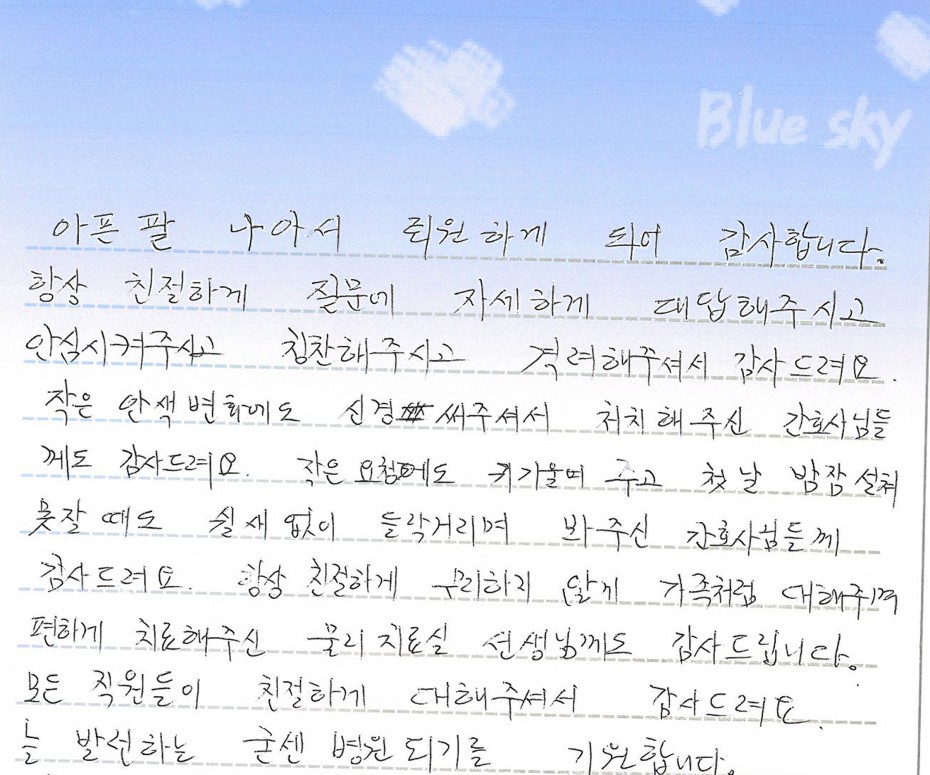 Blue sky
아픈 팔 나아서 퇴원하게 되어 감사합니다.
항상 친절하게 질문에 자세하게 대답해주시고
안심시켜주시고 칭찬해주시고 격려해주셔서 감사드려요.
작은 안색변화에도 신경 써주셔서 처치해주신 간호사님들
께도 감사드려요. 작은 요청에도 귀기울여 주고 첫날 밤잠 설쳐
못잘 때도 쉴새없이 들락거리며 봐주신 간호사님들께
감사드려요. 항상 친절하게 무리하지 않게 가족처럼 대해주며
편하게 치료해주신 물리치료실 선생님께도 감사드립니다.
모든 직원들이 친절하게 대해주셔서 감사드려요.
늘 발전하는 굳센 병원되기를 기원합니다.